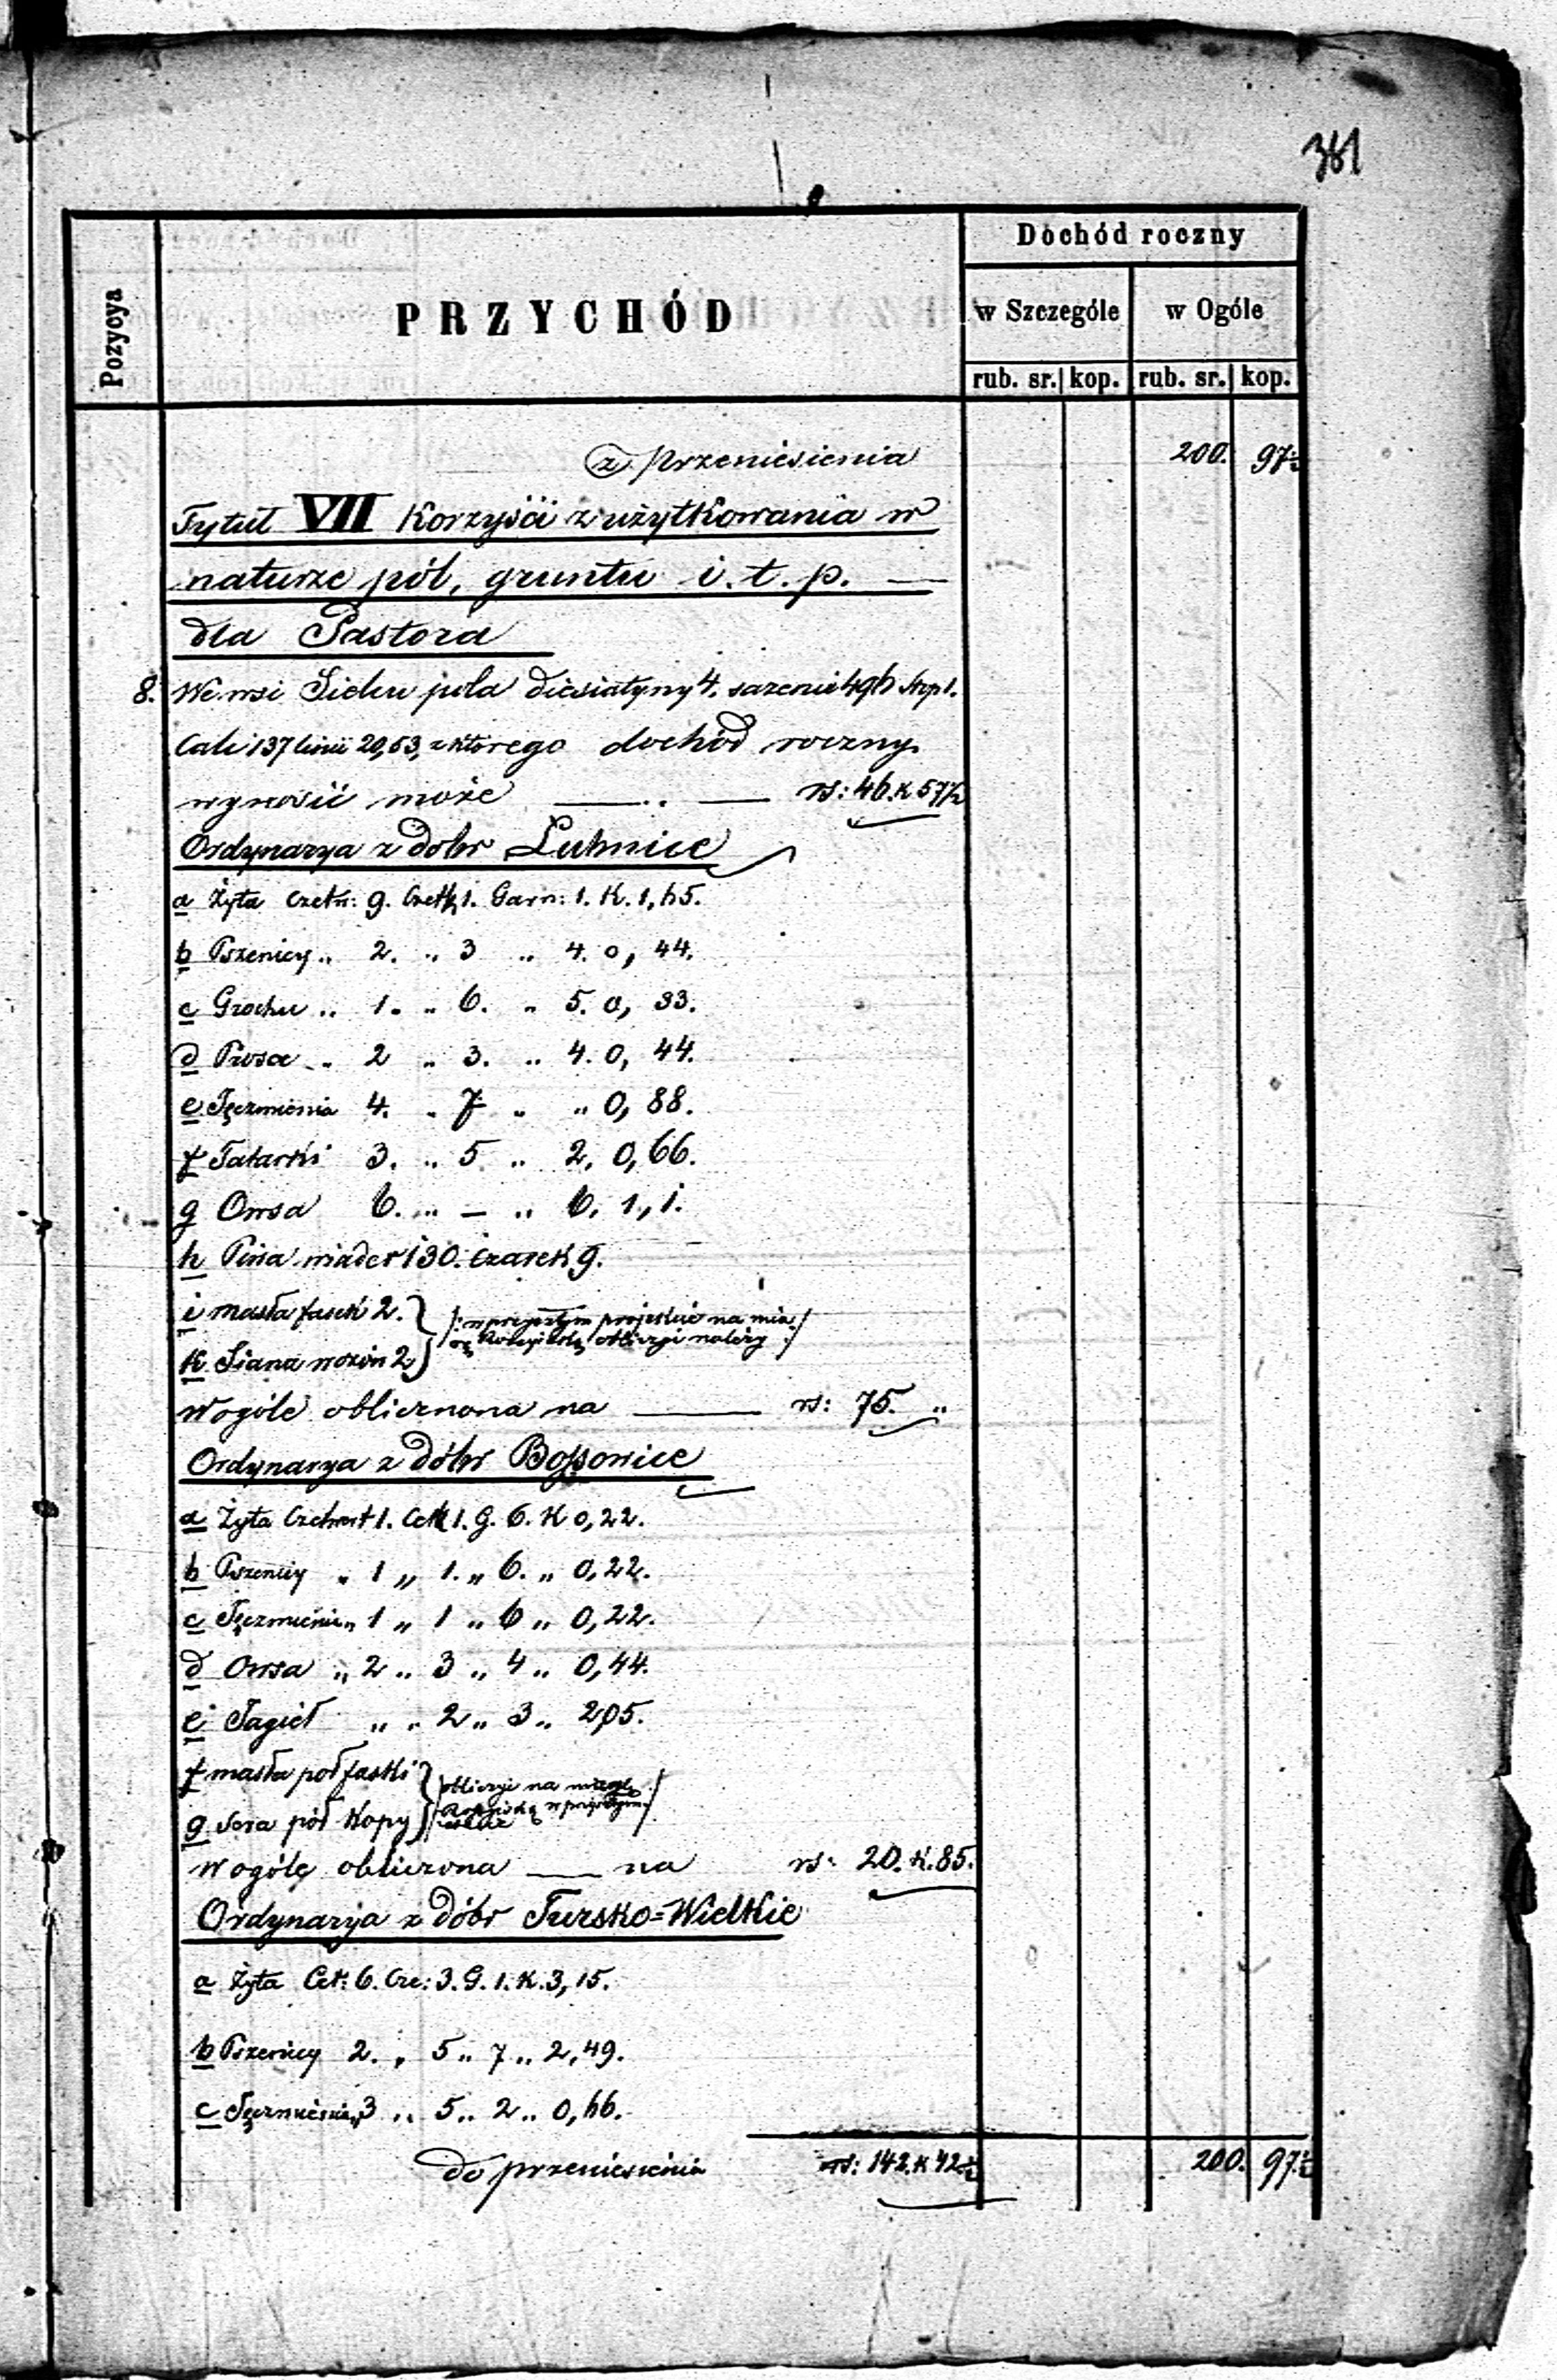 381
Pozycya
PRZYCHÓD
Dochód roczny
w Szczególe
w Ogóle
rub. sr. kop. rub. sr. kop.
z przeniesienia 200. 97½
Tytuł VII Korzyści z użytkowania w
naturze pól, gruntu i. t. p. —
dla Pastora
8. We wsi Sielcu pola diesiatyny 4. sazeni 496 Stop 1.
Cali 137 linii 20,53, z którego dochód roczny
wynosić może —..— rs: 46. k 57½
Ordynarya z dobr Łubnice
a Żyta Czetw: 9. Czetk 1. Garn: 1. K. 1,65.
b Pszenicy „ 2. „ 3 „ 4. 0, 44.
c Grochu „ 1. „ 6. „ 5. 0, 33.
d Prosa „ 2 „ 3. „ 4. 0, 44.
e Jęczmienia 4. „ 7 „ „ 0, 88.
f Tatarki 3. „ 5 „ 2, 0,66.
g Owsa 6. „ — „ 6. 1, 1.
h Piwa wiader 130. czarek 9.
i masła fasek 2.
k Siana wozów 2
/: w przyszłym projekcie na mia
rę Rossyiską obliczyć należy :/
W ogóle obliczona na — rs: 75. „
Ordynarya z dóbr Bossowice
a Żyta Czetwert 1. Cetk 1. G. 6. K 0,22.
b Pszenicy „ 1 „ 1. „ 6. „ 0,22.
c Jęczmienia „ 1 „ 1 „ 6 „ 0,22.
d Owsa „ 2 „ 3 „ 4 „ 0,44.
e Jagieł „ „ 2 „ 3 „ 2,05.
f masła pół faski
g Sera pół Kopy
/: obliczyć na miarę
Rossyiską w przyszłym :/
W ogóle obliczona — na rs: 20. K. 85.
Ordynaryja z dóbr Tursko=Wielkie
a Żyta Cet: 6. Cze: 3. G. 1. K. 3,15.
b Pszenicy 2. „ 5 „ 7 „ 2,49.
c Jęczmienia „ 3 „ 5 „ 2 „ 0,66.
do przeniesienia rs: 142. K 42½ 200. 97½